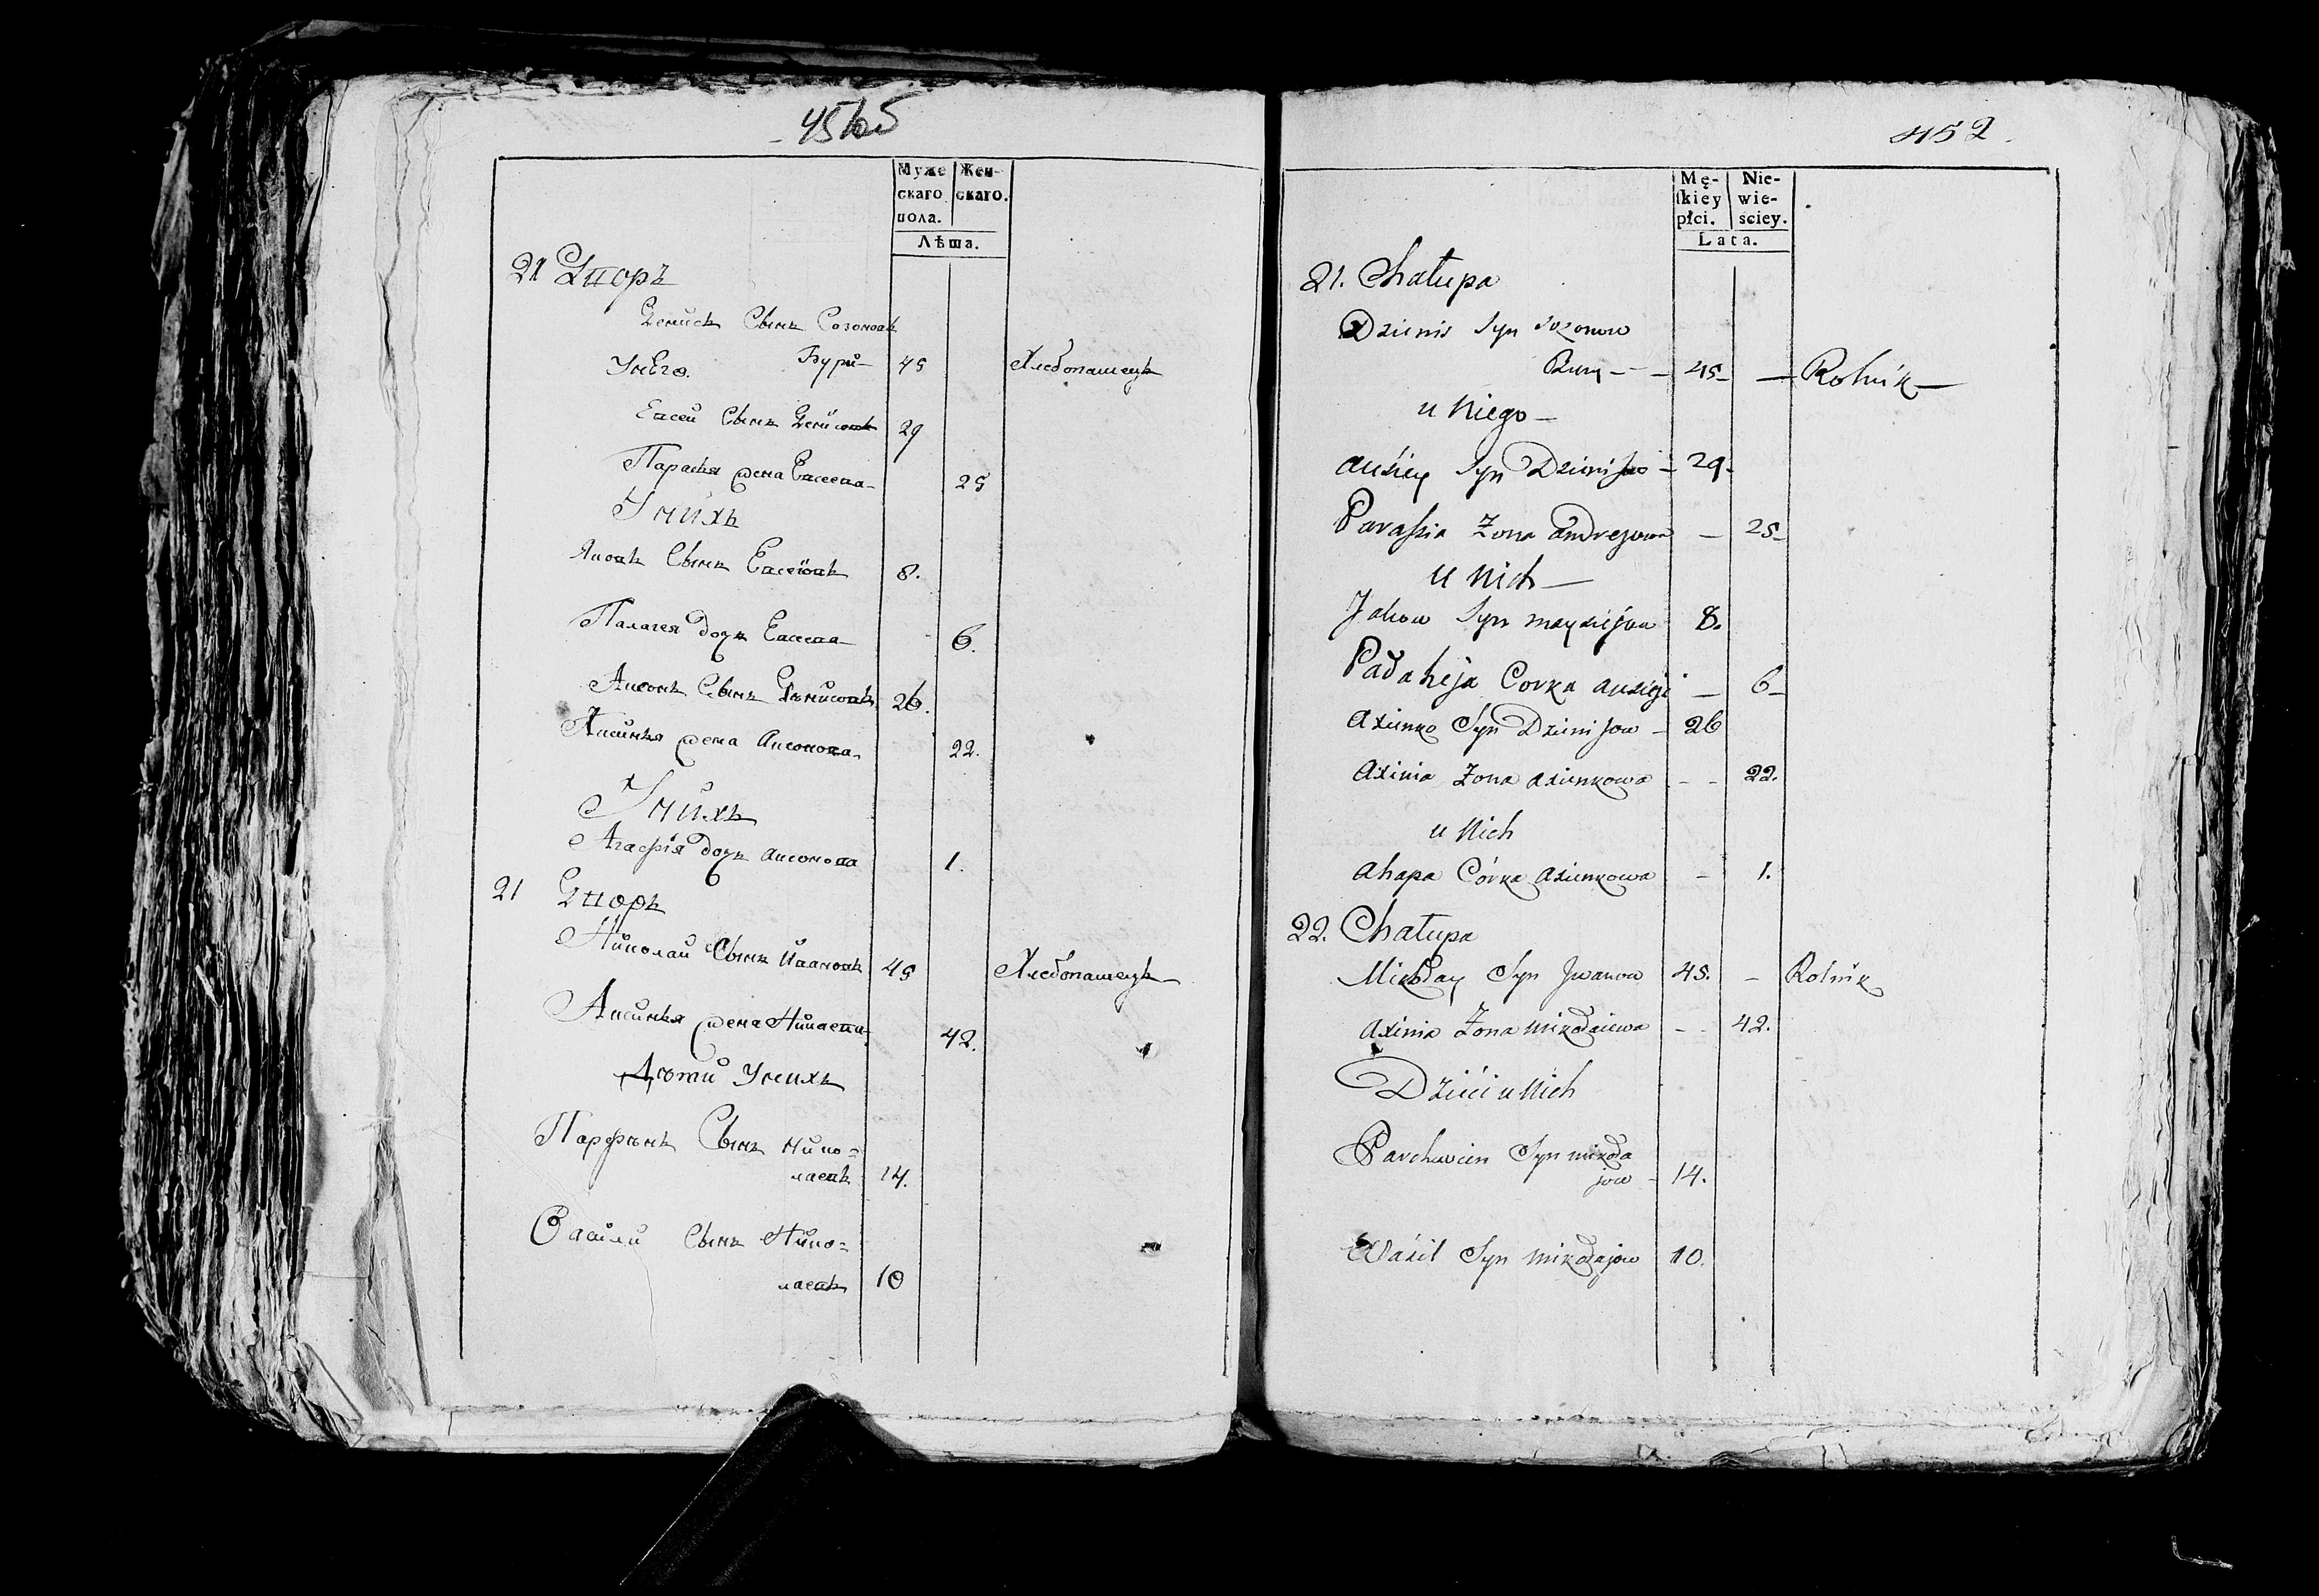 451об
Муже
скаго
пола.
Жен-
скаго.
Лѣта.
21 Дворъ
Денисъ Сынъ Созоновъ
Бурый 45 Хлебопашецъ
У него.
Евсей Сынъ Денисовъ 29
Парасья жена Евсеева 25
У нихъ
Яковъ Сынъ Евсеiовъ 8.
Палагея дочь Евсеева 6.
Аксонъ Сынъ Денисовъ 26.
Аксинья жена Аксонова 22.
У нихъ
Агафiя дочь Аксонова 1.
21 Дворъ
Николай Сынъ Ивановъ 45 Хлебопашецъ
Аксинья жена Николаева 42.
Дѣти У нихъ
Парфѣнъ Сынъ Нико=
лаевъ 14.
Василий Сынъ Нико=
лаевъ 10
452
Mę-
skiey
płci.
Nie-
wie-
sciey.
Lata.
21. Chałupa
Dzienis Syn Sozonow
Bury - - - 45 - - Rolnik -
u Niego -
Auziey Syn Dzienisow - 29 -
Paraszia Żona Andrejowa - 25 -
u Nich -
Jakow Syn 8.
Pałaheja Corka Auzieji - 6 -
Axienko Syn Dzienisow - 26
Axinia Żona Axienkowa - - 22.
u Nich
Ahapa Córka Axienkowa - 1.
22. Chałupa
Mikołay Syn Jwanow 45. - Rolnik
Axinia Żona Mikołaiewa - - 42.
Dzieci u Nich
Parchwien Syn Mikoła
jow - 14.
Wasil Syn Mikołajow 10.